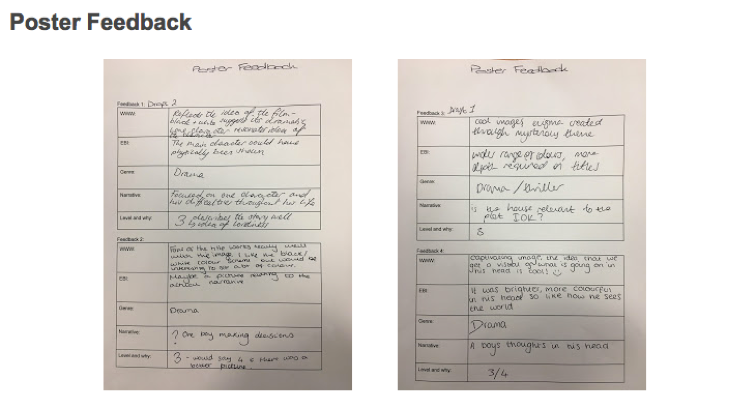 Poster Feedback
Poster Feedback
Feedback 1: Draft 2
WWW:
Reflects the idea of the film -
black + white suggests its dramatic
resonates idea of
EBI:
The main character could have
physically been shown
Genre:
Drama
Narrative:
Focused on one character and
his difficulties throughout his life
Level and why:
3 describes the story well
& idea of
Feedback 2:
WWW:
Font of the title works really well
with the image. I like the black/
white colour scheme but would be
interesting to see a bit of colour
EBI:
Maybe a picture relating to the
actual narrative
Genre:
Drama
Narrative:
? One boy making decisions
Level and why:
3 - would say 4 if there was a
better picture
Poster Feedback
Feedback 3: Draft 1
WWW:
cool images enigma created
through mysterious theme
EBI:
wider range of colours, more
depth required in titles
Genre:
Drama / thriller
Narrative:
is the house relevant to the
plot IDK?
Level and why:
3
Feedback 4:
WWW:
Captivating image, the idea that we
get a visual of what is going on in
his head is cool! :)
EBI:
it was brighter, more colourful
in his head so like how he sees
the world
Genre:
Drama
Narrative:
A boys thoughts in his head
Level and why:
3/4